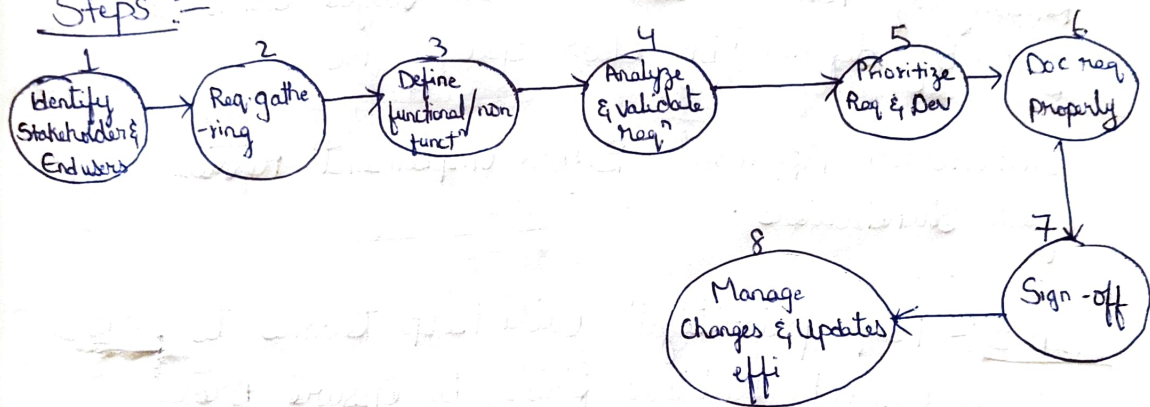 Steps :-
1
Identify
Stakeholder &
End users
2
Req. gathe
-ring
3
Define
functional/non
functⁿ
4
Analyze
& validate
reqⁿ
5
Prioritize
Req & Dev
6
Doc req
properly
7
Sign-off
8
Manage
Changes & Updates
effi